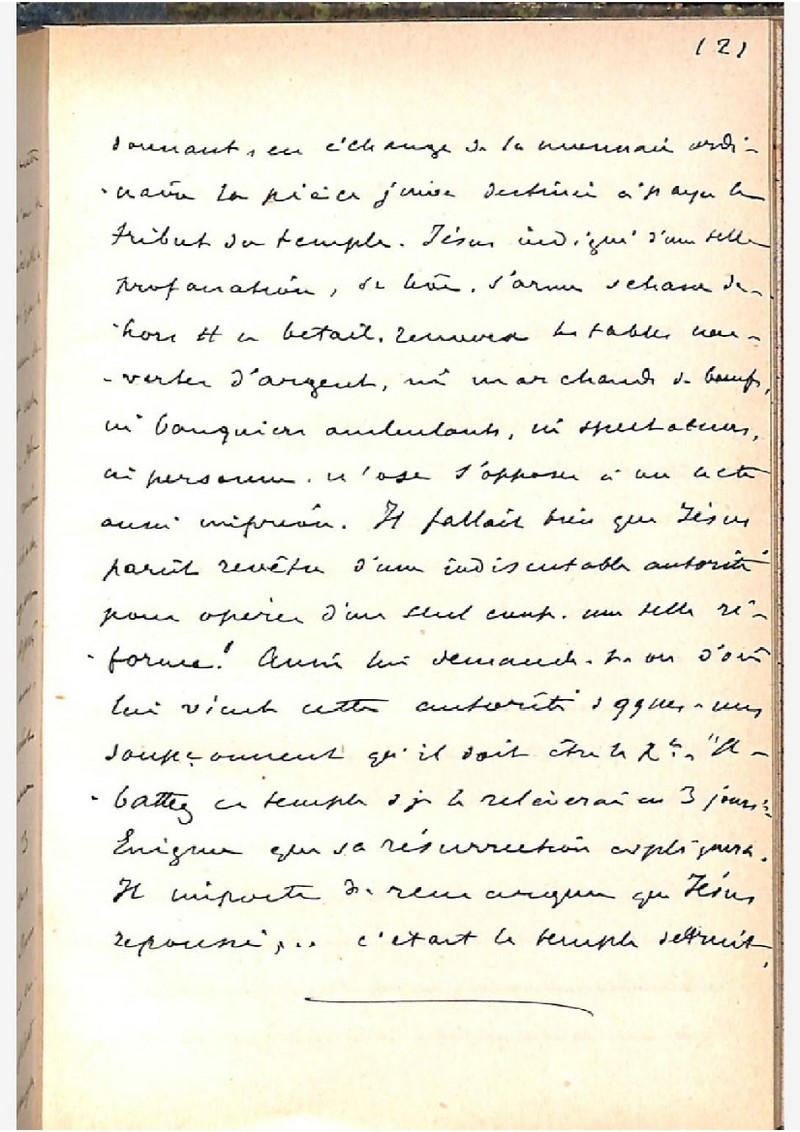 (2)
donnant, en échange de la monnaie ordi-
-naire la pièce juive destinée à payer le
tribut du temple. Jésus indigné d'une telle
profanation, se lève, s'arme & chasse de-
hors tt ce bétail, renverse les tables cou-
-vertes d'argent, ni marchands de bœufs,
ni banquiers ambulants, ni spectateurs,
ni personne n'ose s'opposer à un acte
aussi imprévu. Il fallait bien que Jésus
parût revêtu d'une indiscutable autorité
pour opérer d'un seul coup une telle ré-
-forme! Aussi lui demande-t-on d'où
lui vient cette autorité & qques-uns
soupçonnent qu'il doit être le "A-
-battez ce temple & je le relèverai en 3 jours"
Énigme que sa résurrection expliquera.
Il importe de remarquer que Jésus
repoussé,... c'était le temple détruit,